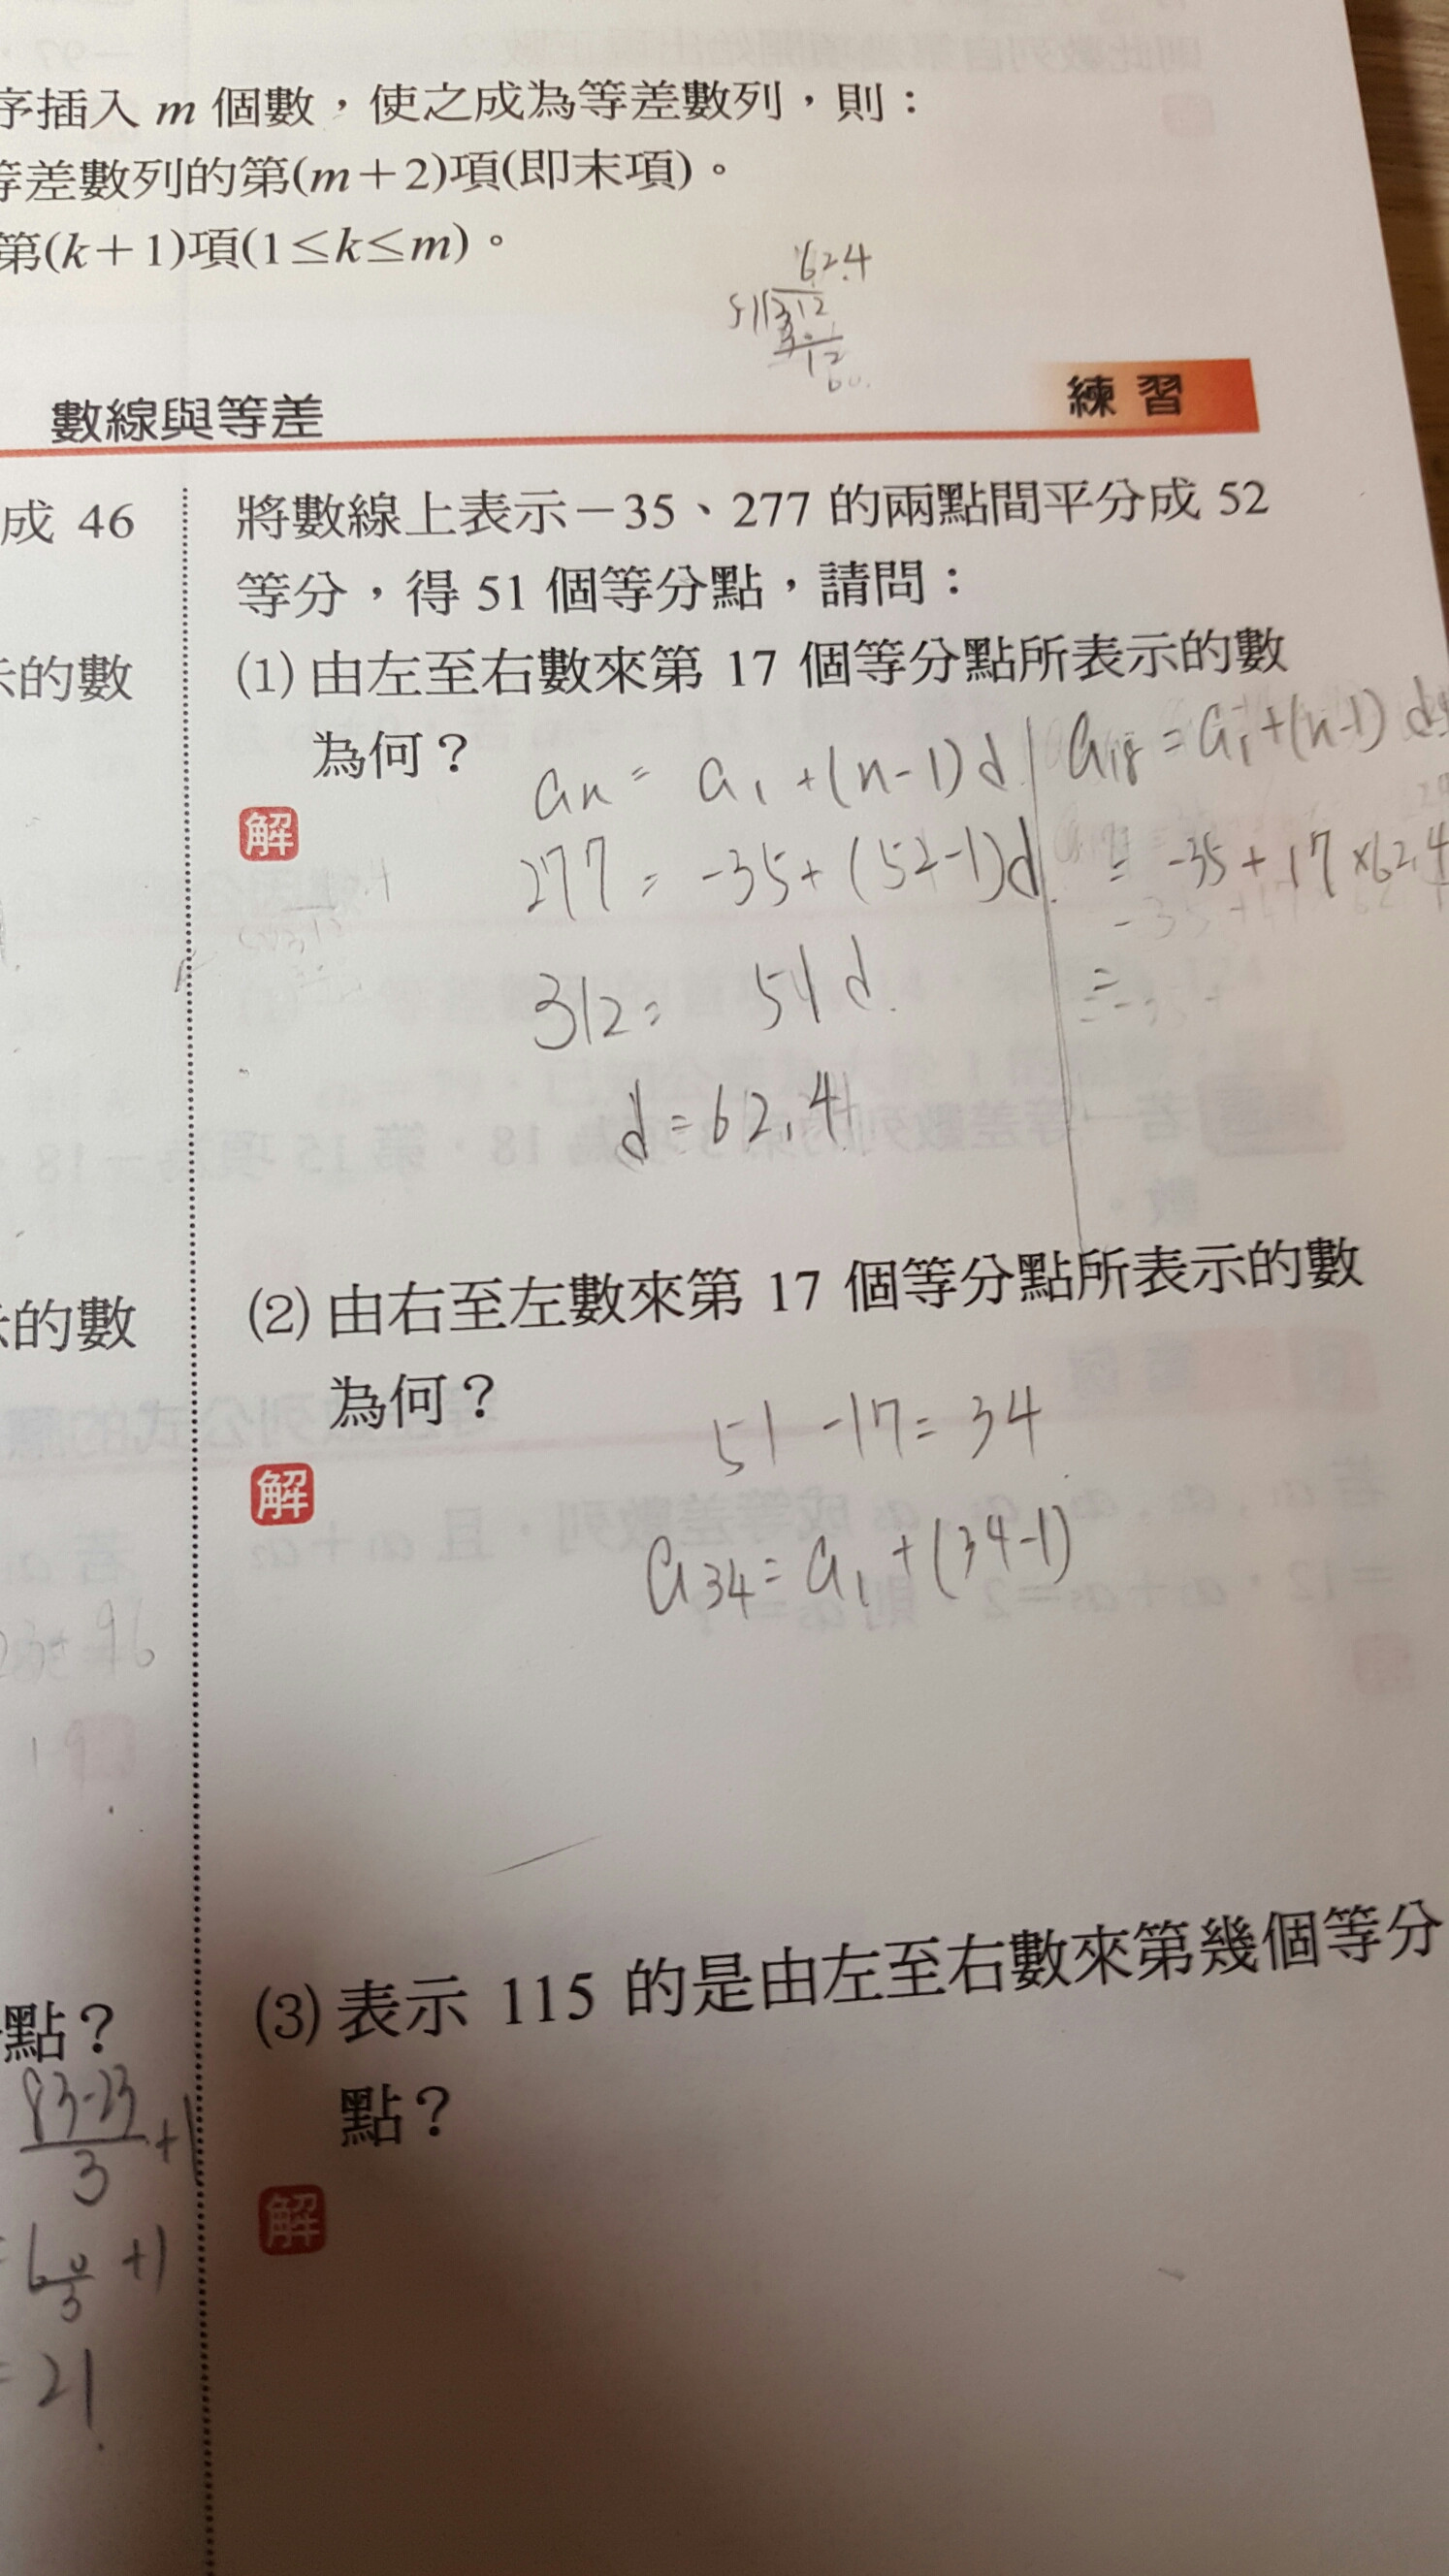 序插入 m 個數，使之成為等差數列，則：
等差數列的第(m＋2)項(即末項)。
第(k＋1)項(1≤k≤m)。
62.4
312
12
數線與等差
練習
成 46
將數線上表示－35、277 的兩點間平分成 52
等分，得 51 個等分點，請問：
的數
(1) 由左至右數來第 17 個等分點所表示的數
為何？
an = a1 + (n-1)d
a18 = a1 + (n-1) d
解
277 = -35 + (52-1)d
= -35 + 17 × 62.4
312 = 51d
=
d = 62.4
的數
(2) 由右至左數來第 17 個等分點所表示的數
為何？
51 - 17 = 34
解
a34 = a1 + (34-1)
點？
(3) 表示 115 的是由左至右數來第幾個等分
點？
83-23
3
+1
解
+1
= 21